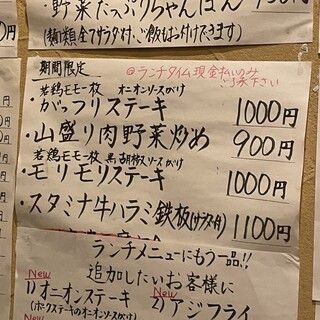 野菜たっぷりちゃんぽん
(麺類全てサラダ付、ご飯もお付けできます)
期間限定
@ランチタイム現金払いのみ
ご了承下さい
若鶏モモ一枚 オニオンソースがけ
・がっつりステーキ 1000円
・山盛り肉野菜炒め 900円
若鶏モモ一枚 黒胡椒ソースがけ
・モリモリステーキ 1000円
・スタミナ牛ハラミ鉄板(サラダ付) 1100円
ランチメニューにもう一品!!
追加したいお客様に
New New
1)オニオンステーキ 2)アジフライ
(ポークステーキのオニオンソースがけ)
New